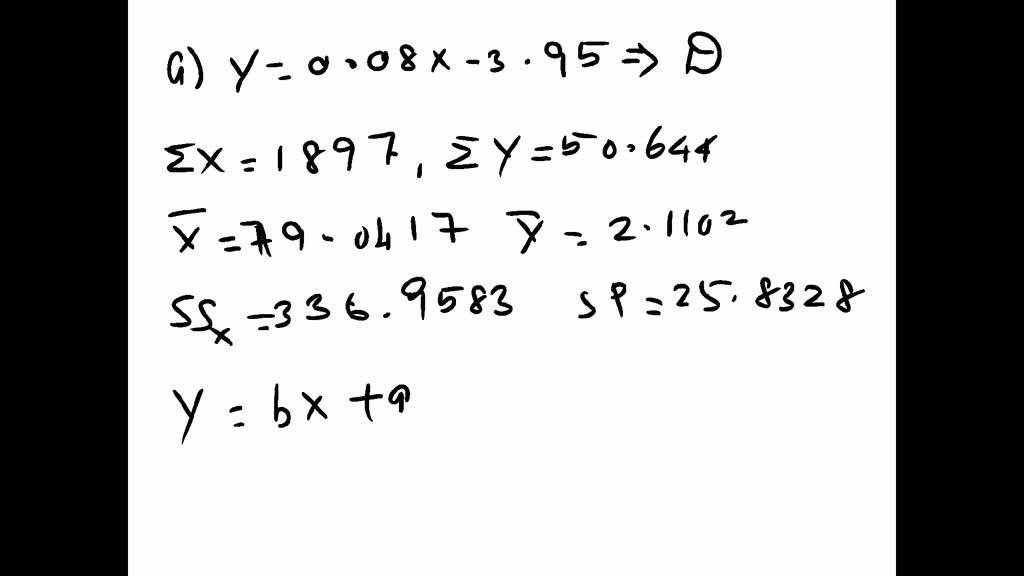 a) Y = 0.08x - 3.95 ⇒ D
ΣX = 1897, ΣY = 50.644
X̅ = 79.0417 Y̅ = 2.1102
SSx = 336.9583 SP = 25.8328
Y = bx + a